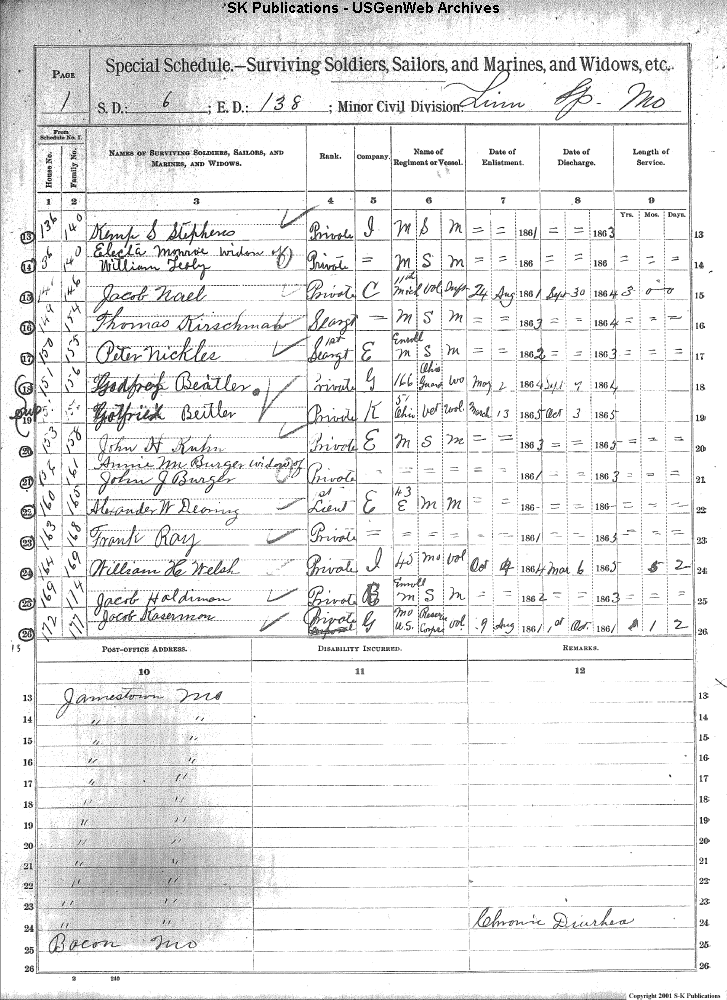 'SK Publications - USGenWeb Archives
Special Schedule.—Surviving Soldiers, Sailors, and Marines, and Widows, etc.
PAGE
1
S. D.: 6 ; E. D.: 138 ; Minor Civil Division: Linn Tp. Mo
From Schedule No. 1.
House No. Family No. NAMES OF SURVIVING SOLDIERS, SAILORS, AND MARINES, AND WIDOWS. Rank. Company. Name of Regiment or Vessel. Date of Enlistment. Date of Discharge. Length of Service.
1 2 3 4 5 6 7 8 9
Yrs. Mos. Days.
13 136 140 Kemp S Stephens Private I M S M = = 1861 = = 1863 13
Electa Monroe widow of
14 140 William Private = M S M = = 186 = = 186 = = = 14
15 146 Jacob Nael Private C 11th Mich Vol 24 Aug 1861 Sept 30 1864 3 0 0 15
16 149 154 Thomas Kirschman Seargt — M S M = = 1863 = = 1864 = = = 16
17 150 155 Peter Nickles 1st Seargt E Enroll M S M = = 1862 = = 1863 = = = 17
18 151 156 Godfrey Beatler. Private G 166 Ohio Guard May 2 1864 Sept 9 1864 18
sup 19 Gotfried Beitler Private K 51 Ohio Vet Vol. March 13 1865 Oct 3 1865 19
20 153 158 John H Kuhn Private E M S M = = 1863 = = 1865 = = = 20
Annie M. Burger widow of
21 161 John J Burger Private = = = = = = 1861 = = 1863 = = = 21
22 160 165 Alexander W Deoring 1st Lieut E 43 E M M = = 186- = = 186- = = = 22
23 163 168 Frank Ray Private = = = = = = 1861 = = 1865 = = = 23
24 164 169 William H Welsh Private I 45 Mo Vol Oct 1864 Mar 6 1865 5 2 24
25 169 174 Jacob Haldiman Private B Enroll M S M = = 1862 = = 1863 = = = 25
26 172 177 Jacob Kasermon Private G Mo U.S. Reserve Corps Vol. 9 Aug 1861 1st Oct. 1861 1 2 26
POST-OFFICE ADDRESS. DISABILITY INCURRED. REMARKS.
10 11 12
13 Jamestown Mo 13
14 " " 14
15 " " 15
16 " " 16
17 " " 17
18 " " 18
19 " " 19
20 " " 20
21 " " 21
22 " " 22
23 " " 23
24 " " Chronic Diarhea 24
25 Bacon Mo 25
26 26
2 240
Copyright 2001 S-K Publications